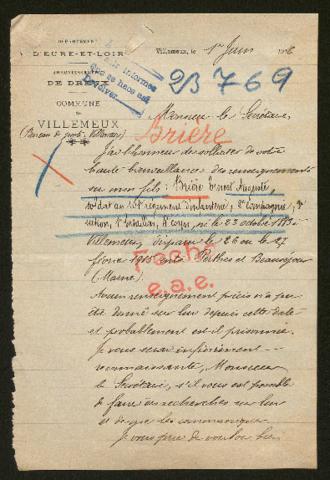 DÉPARTEMENT
D'EURE-ET-LOIR
ARRONDISSEMENT
DE DREUX
COMMUNE
de
VILLEMEUX
Villemeux, le 1er Juin 1916
23769
Monsieur le Secrétaire,
BRIERE
J'ai l'honneur de solliciter de votre
haute bienveillance des renseignements
sur mon fils : Brière Ernest Auguste,
soldat au d'infanterie, 8e Compagnie,
section, bataillon, 4e corps, né le 23 octobre
Villemeux, disparu le 26 ou le 27
février 1915 entre Perthes et Beauséjour
(Marne).
Fiche
Aucun renseignement précis n'a pu
e.a.e.
être donné sur lui depuis cette date
et probablement est-il prisonnier.
Je vous serai infiniment
reconnaissante, Monsieur
le Secrétaire, s'il vous est possible
de faire des recherches sur lui
et de me les communiquer.
Je vous prie de vouloir bien